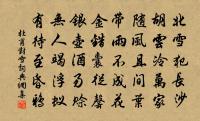 北雪犯長沙
胡雲冷萬家
隨風且間葉
帶雨不成花
金錯囊從罄
銀壺酒易賒
無人竭浮蟻
有待至昏鴉
杜甫對雪詞典網集